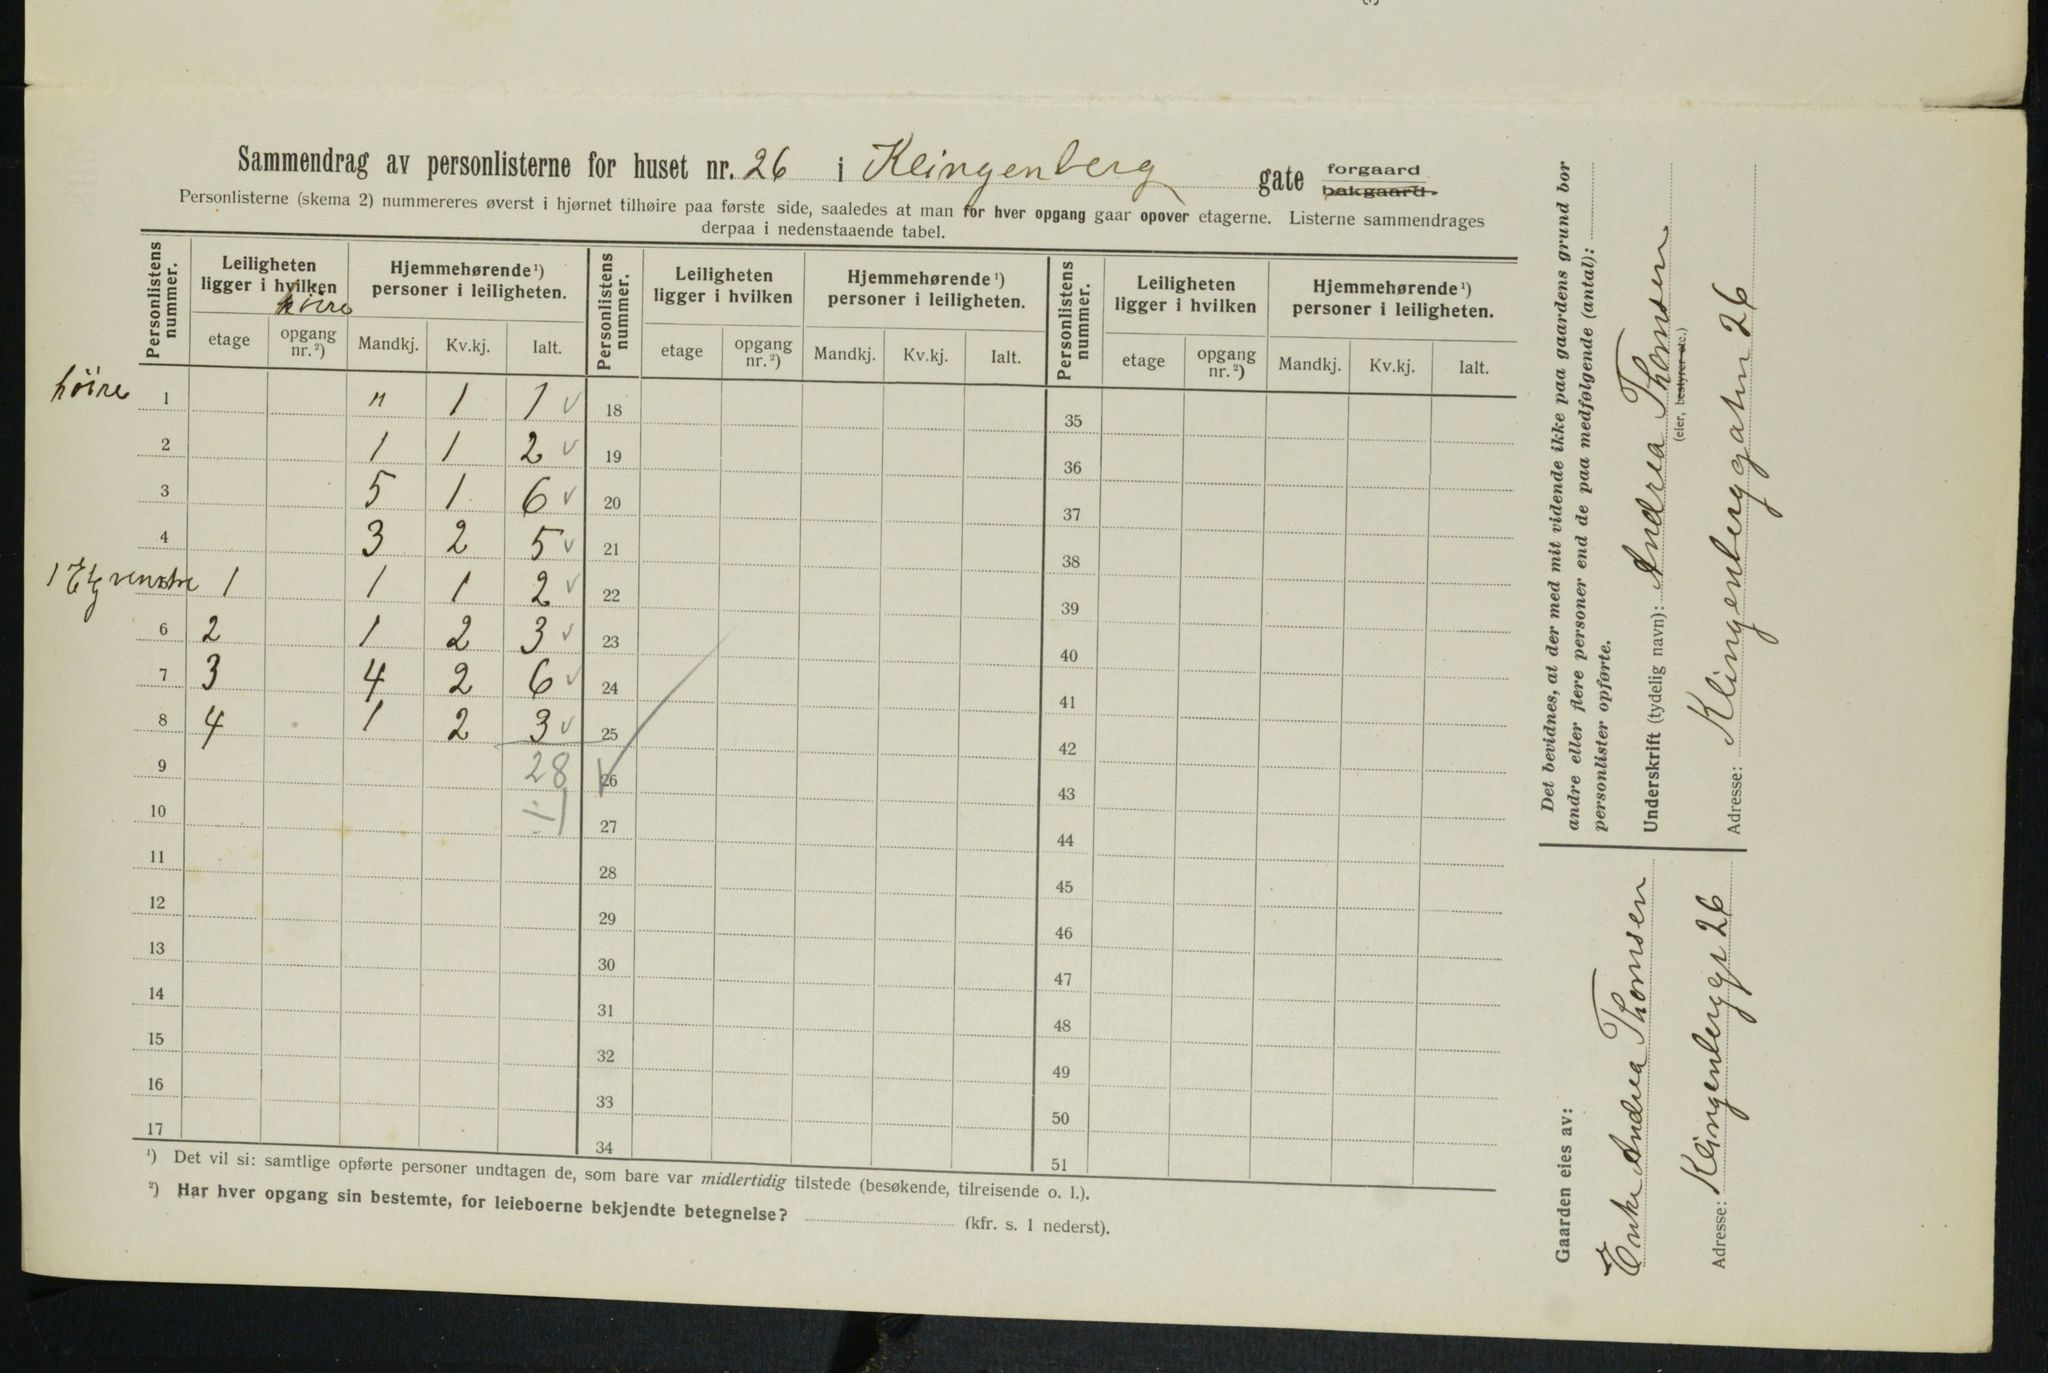 Sammendrag av personlisterne for huset nr. 26 i Klingenberg gate forgaard bakgaard.
Personlisterne (skema 2) nummereres øverst i hjørnet tilhøire paa første side, saaledes at man for hver opgang gaar opover etagerne. Listerne sammendrages
derpaa i nedenstaaende tabel.
Personlistens nummer. Leiligheten ligger i hvilken Hjemmehørende ¹) personer i leiligheten. Personlistens nummer. Leiligheten ligger i hvilken Hjemmehørende ¹) personer i leiligheten. Personlistens nummer. Leiligheten ligger i hvilken Hjemmehørende ¹) personer i leiligheten.
høire
etage opgang nr. ²) Mandkj. Kv.kj. Ialt. etage opgang nr. ²) Mandkj. Kv.kj. Ialt. etage opgang nr. ²) Mandkj. Kv.kj. Ialt.
høire 1 " 1 1 ✓ 18 35
2 1 1 2 ✓ 19 36
3 5 1 6 ✓ 20 37
4 3 2 5 ✓ 21 38
1 Etg venstre 1 1 1 2 ✓ 22 39
6 2 1 2 3 ✓ 23 40
7 3 4 2 6 ✓ 24 41
8 4 1 2 3 ✓ 25 42
9 28 26 43
10 27 44
11 28 45
12 29 46
13 30 47
14 31 48
15 32 49
16 33 50
17 34 51
¹) Det vil si: samtlige opførte personer undtagen de, som bare var midlertidig tilstede (besøkende, tilreisende o. l.).
²) Har hver opgang sin bestemte, for leieboerne bekjendte betegnelse? (kfr. s. 1 nederst).
Det bevidnes, at der med mit vidende ikke paa gaardens grund bor
andre eller flere personer end de paa medfølgende (antal):
personlister opførte.
Underskrift (tydelig navn): Andrea Thomsen
(eier, bestyrer etc.)
Adresse: Klingenberggaten 26
Gaarden eies av:
Enke Andrea Thomsen
Adresse: Klingenberggt 26